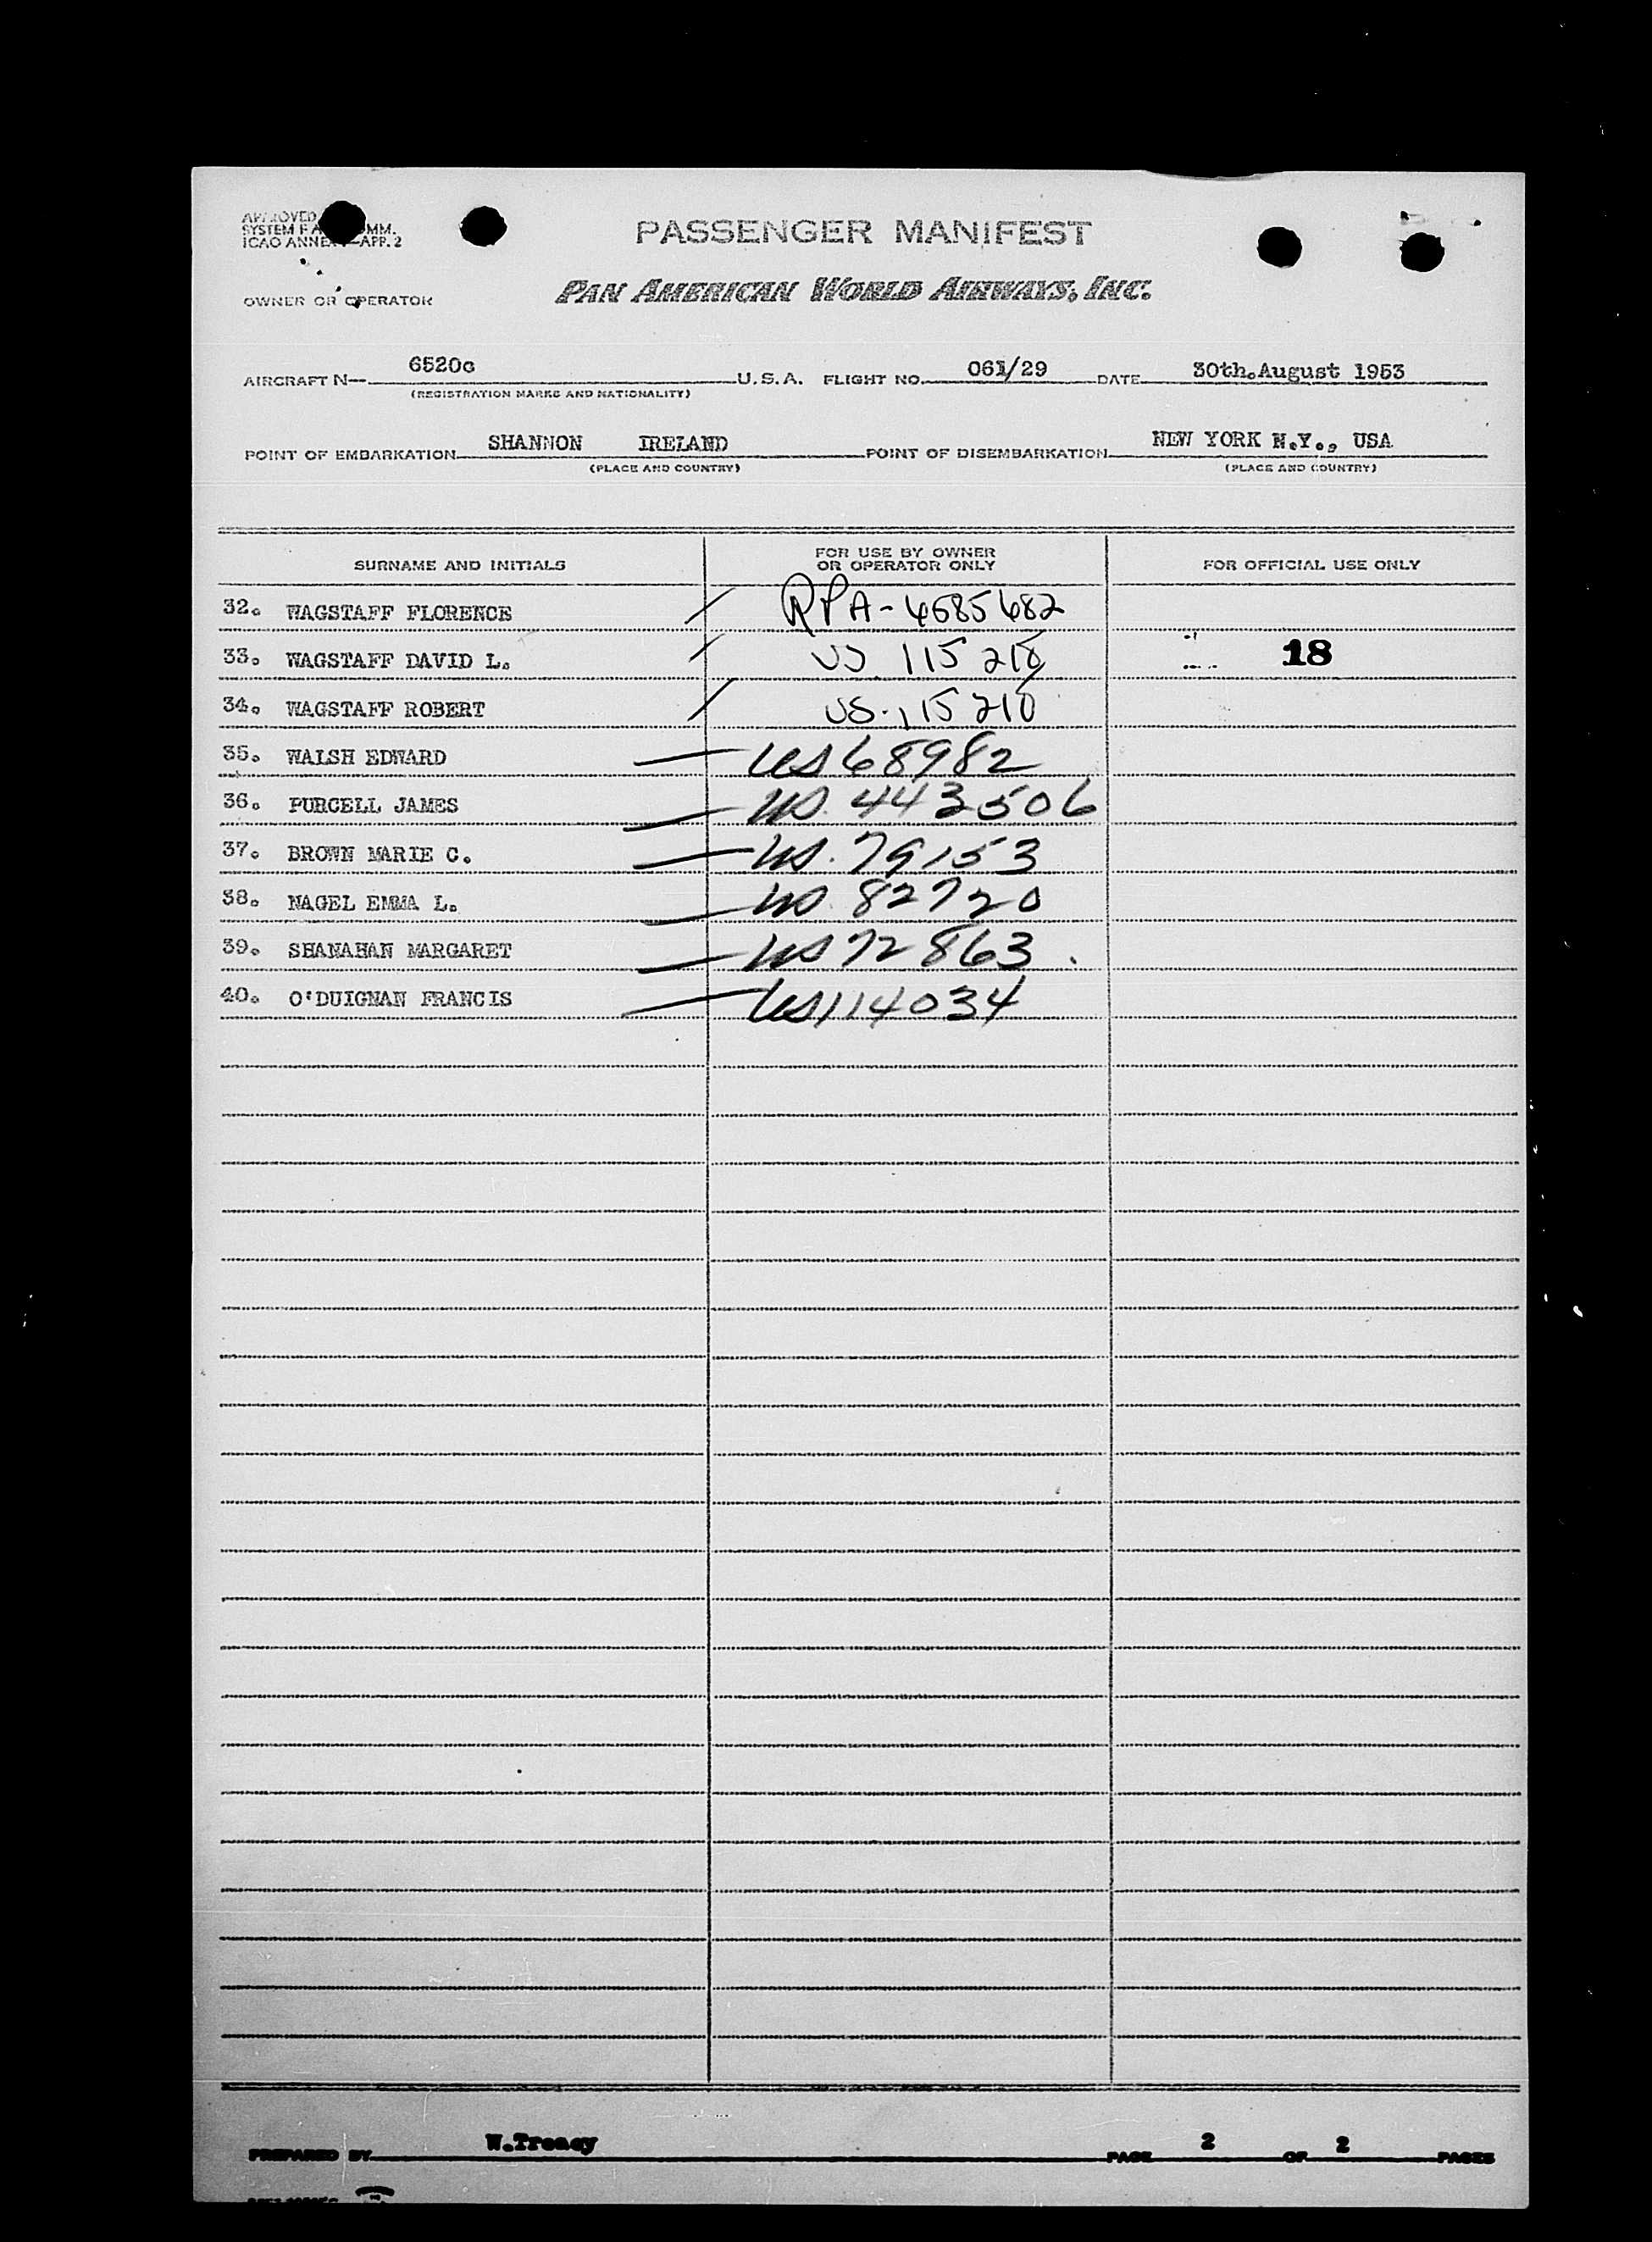 PASSENGER MANIFEST
ICAO ANNEX APP. 2
OWNER OR OPERATOR PAN AMERICAN WORLD AIRWAYS, INC.
AIRCRAFT N— 6520c U.S.A. FLIGHT NO. 061/29 DATE 30th.August 1953
(REGISTRATION MARKS AND NATIONALITY)
POINT OF EMBARKATION SHANNON IRELAND POINT OF DISEMBARKATION NEW YORK N.Y., USA
(PLACE AND COUNTRY) (PLACE AND COUNTRY)
SURNAME AND INITIALS FOR USE BY OWNER OR OPERATOR ONLY FOR OFFICIAL USE ONLY
32. WAGSTAFF FLORENCE RPA-4585482
33. WAGSTAFF DAVID L. US 115210 18
34. WAGSTAFF ROBERT US.115210
35. WALSH EDWARD US68982
36. PURCELL JAMES US.443506
37. BROWN MARIE C. US.79153
38. NAGEL EMMA L. US.82720
39. SHANAHAN MARGARET US72863.
40. O'DUIGNAN FRANCIS US114034
PREPARED BY W.Treacy PAGE 2 OF 2 PAGES